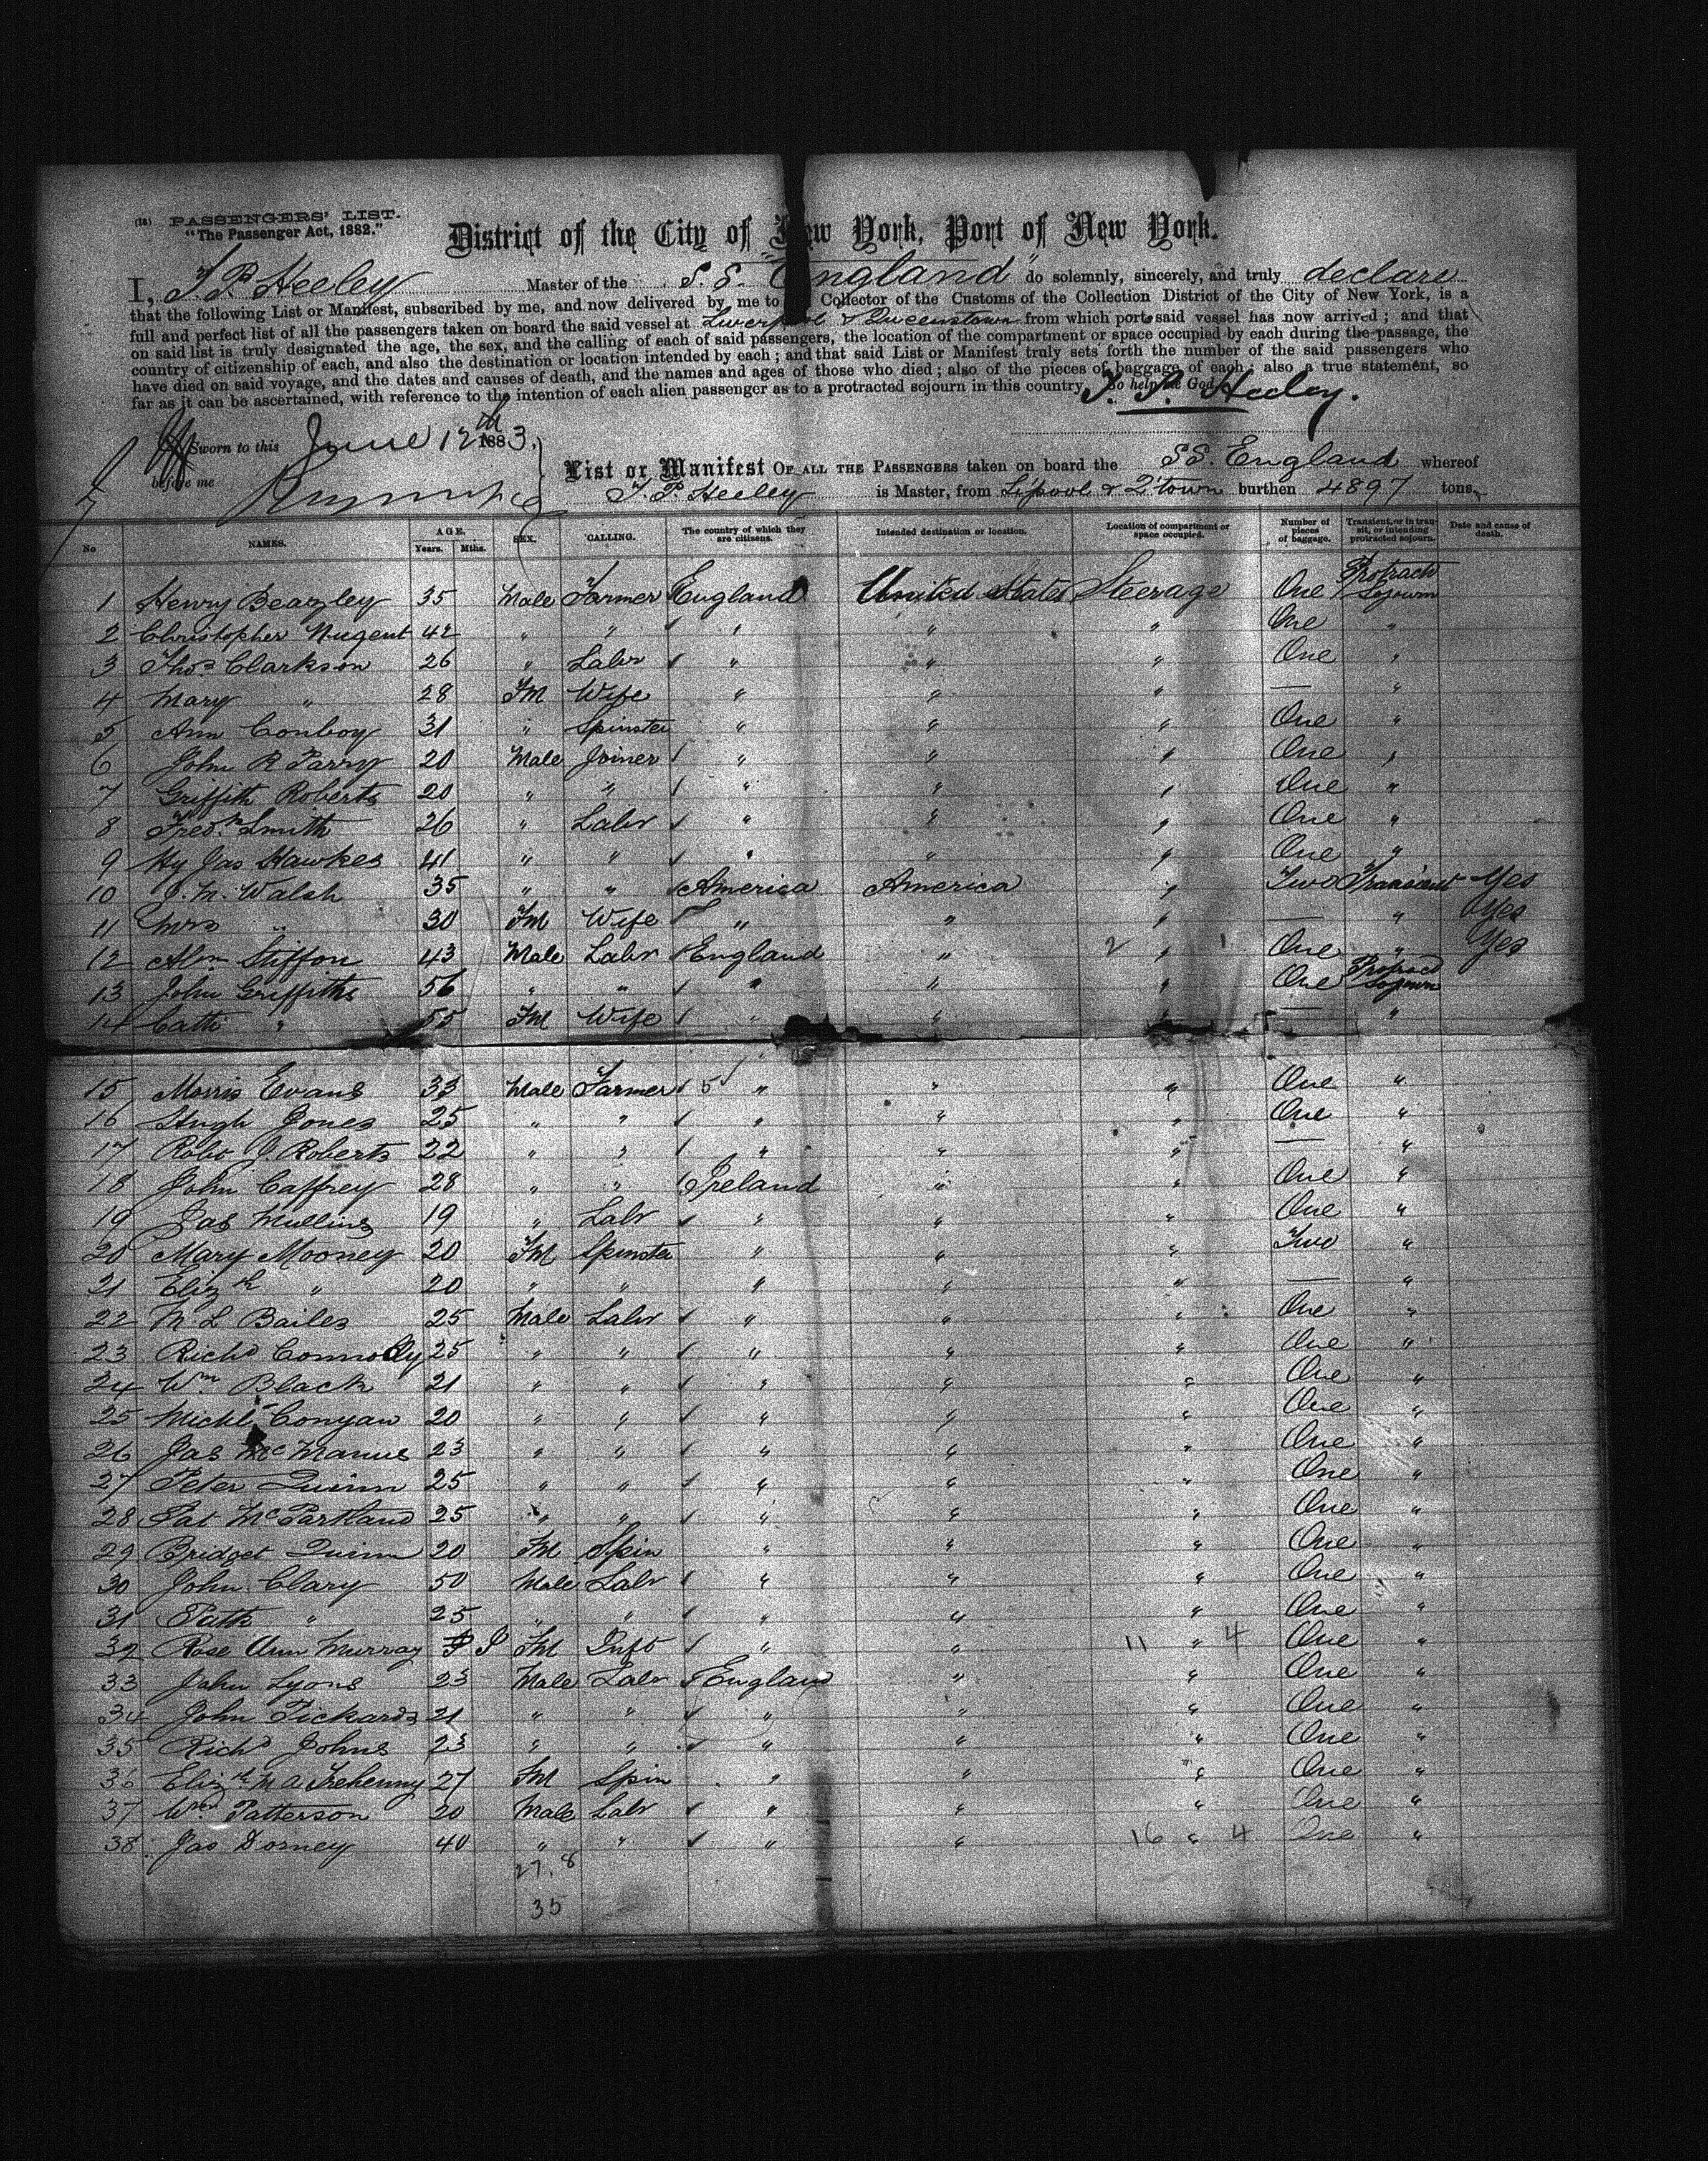 (18) PASSENGERS' LIST.
"The Passenger Act, 1882."
District of the City of New York, Port of New York.
I, T. P. Heeley Master of the S.S. "England" do solemnly, sincerely, and truly declare
that the following List or Manifest, subscribed by me, and now delivered by me to Collector of the Customs of the Collection District of the City of New York, is a
full and perfect list of all the passengers taken on board the said vessel at Liverpool & Queenstown from which ports said vessel has now arrived; and that
on said list is truly designated the age, the sex, and the calling of each of said passengers, the location of the compartment or space occupied by each during the passage, the
country of citizenship of each, and also the destination or location intended by each; and that said List or Manifest truly sets forth the number of the said passengers who
have died on said voyage, and the dates and causes of death, and the names and ages of those who died; also of the pieces of baggage of each; also a true statement, so
far as it can be ascertained, with reference to the intention of each alien passenger as to a protracted sojourn in this country. So help me God. T. P. Heeley.
Sworn to this June 12th 1883.
before me
List or Manifest OF ALL THE PASSENGERS taken on board the SS. England whereof
T. P. Heeley is Master, from L'pool & Q'town burthen 4897 tons.
No NAMES. AGE. Years. Mths. SEX. CALLING. The country of which they are citizens. Intended destination or location. Location of compartment or space occupied. Number of pieces of baggage. Transient, or in transit, or intending protracted sojourn. Date and cause of death.
1 Henry Beazley 35 Male Farmer England United States Steerage One Protract Sojourn
2 Christopher Nugent 42 " " " " " One "
3 Thos Clarkson 26 " Labr " " " One "
4 Mary " 28 FM Wife " " " — "
5 Ann Conboy 31 " Spinster " " " One "
6 John R Parry 20 Male Joiner " " " One "
7 Griffith Roberts 20 " " " " " One "
8 Fredk Smith 26 " Labr " " " One "
9 Hy Jas Hawkes 41 " " " " " One "
10 J. M. Walsh 35 " " America America " Two Transient Yes
11 Mrs " 30 FM Wife " " " — " Yes
12 Stiffon 43 Male Labr England " 2 " 1 One " Yes
13 John Griffiths 56 " " " " " One Protract Sojourn
14 Cath " 55 FM Wife " " " — "
15 Morris Evans 33 Male Farmer 5 " " " One "
16 Hugh Jones 25 " " " " " One "
17 Robt J. Roberts 22 " " " " " — "
18 John Caffrey 28 " " Ireland " " One "
19 Jas Mullins 19 " Labr " " " One "
20 Mary Mooney 20 FM Spinster " " " Two "
21 Elizth " 20 " " " " " — "
22 M L Bailes 25 Male Labr " " " One "
23 Richd Connolly 25 " " " " " One "
24 Wm Black 21 " " " " " One "
25 Michl Conyan 20 " " " " " One "
26 Jas McManus 23 " " " " " One "
27 Peter Quinn 25 " " " " " One "
28 Pat McPartland 25 " " " " " One "
29 Bridget Quinn 20 FM Spin " " " One "
30 John Clary 50 Male Labr " " " One "
31 Patk " 25 " " " " " One "
32 Rose Ann Murray FM Inft " " 11 " 4 One "
33 John Lyons 23 Male Labr England " " One "
34 John Pickards 21 " " " " " One "
35 Richd Johns 23 " " " " " One "
36 Elizth M A Trehenny 27 FM Spin " " " One "
37 Wm Patterson 20 Male Labr " " " One "
38 Jas Dorney 40 " " " " 16 " 4 One "
27. 8
35